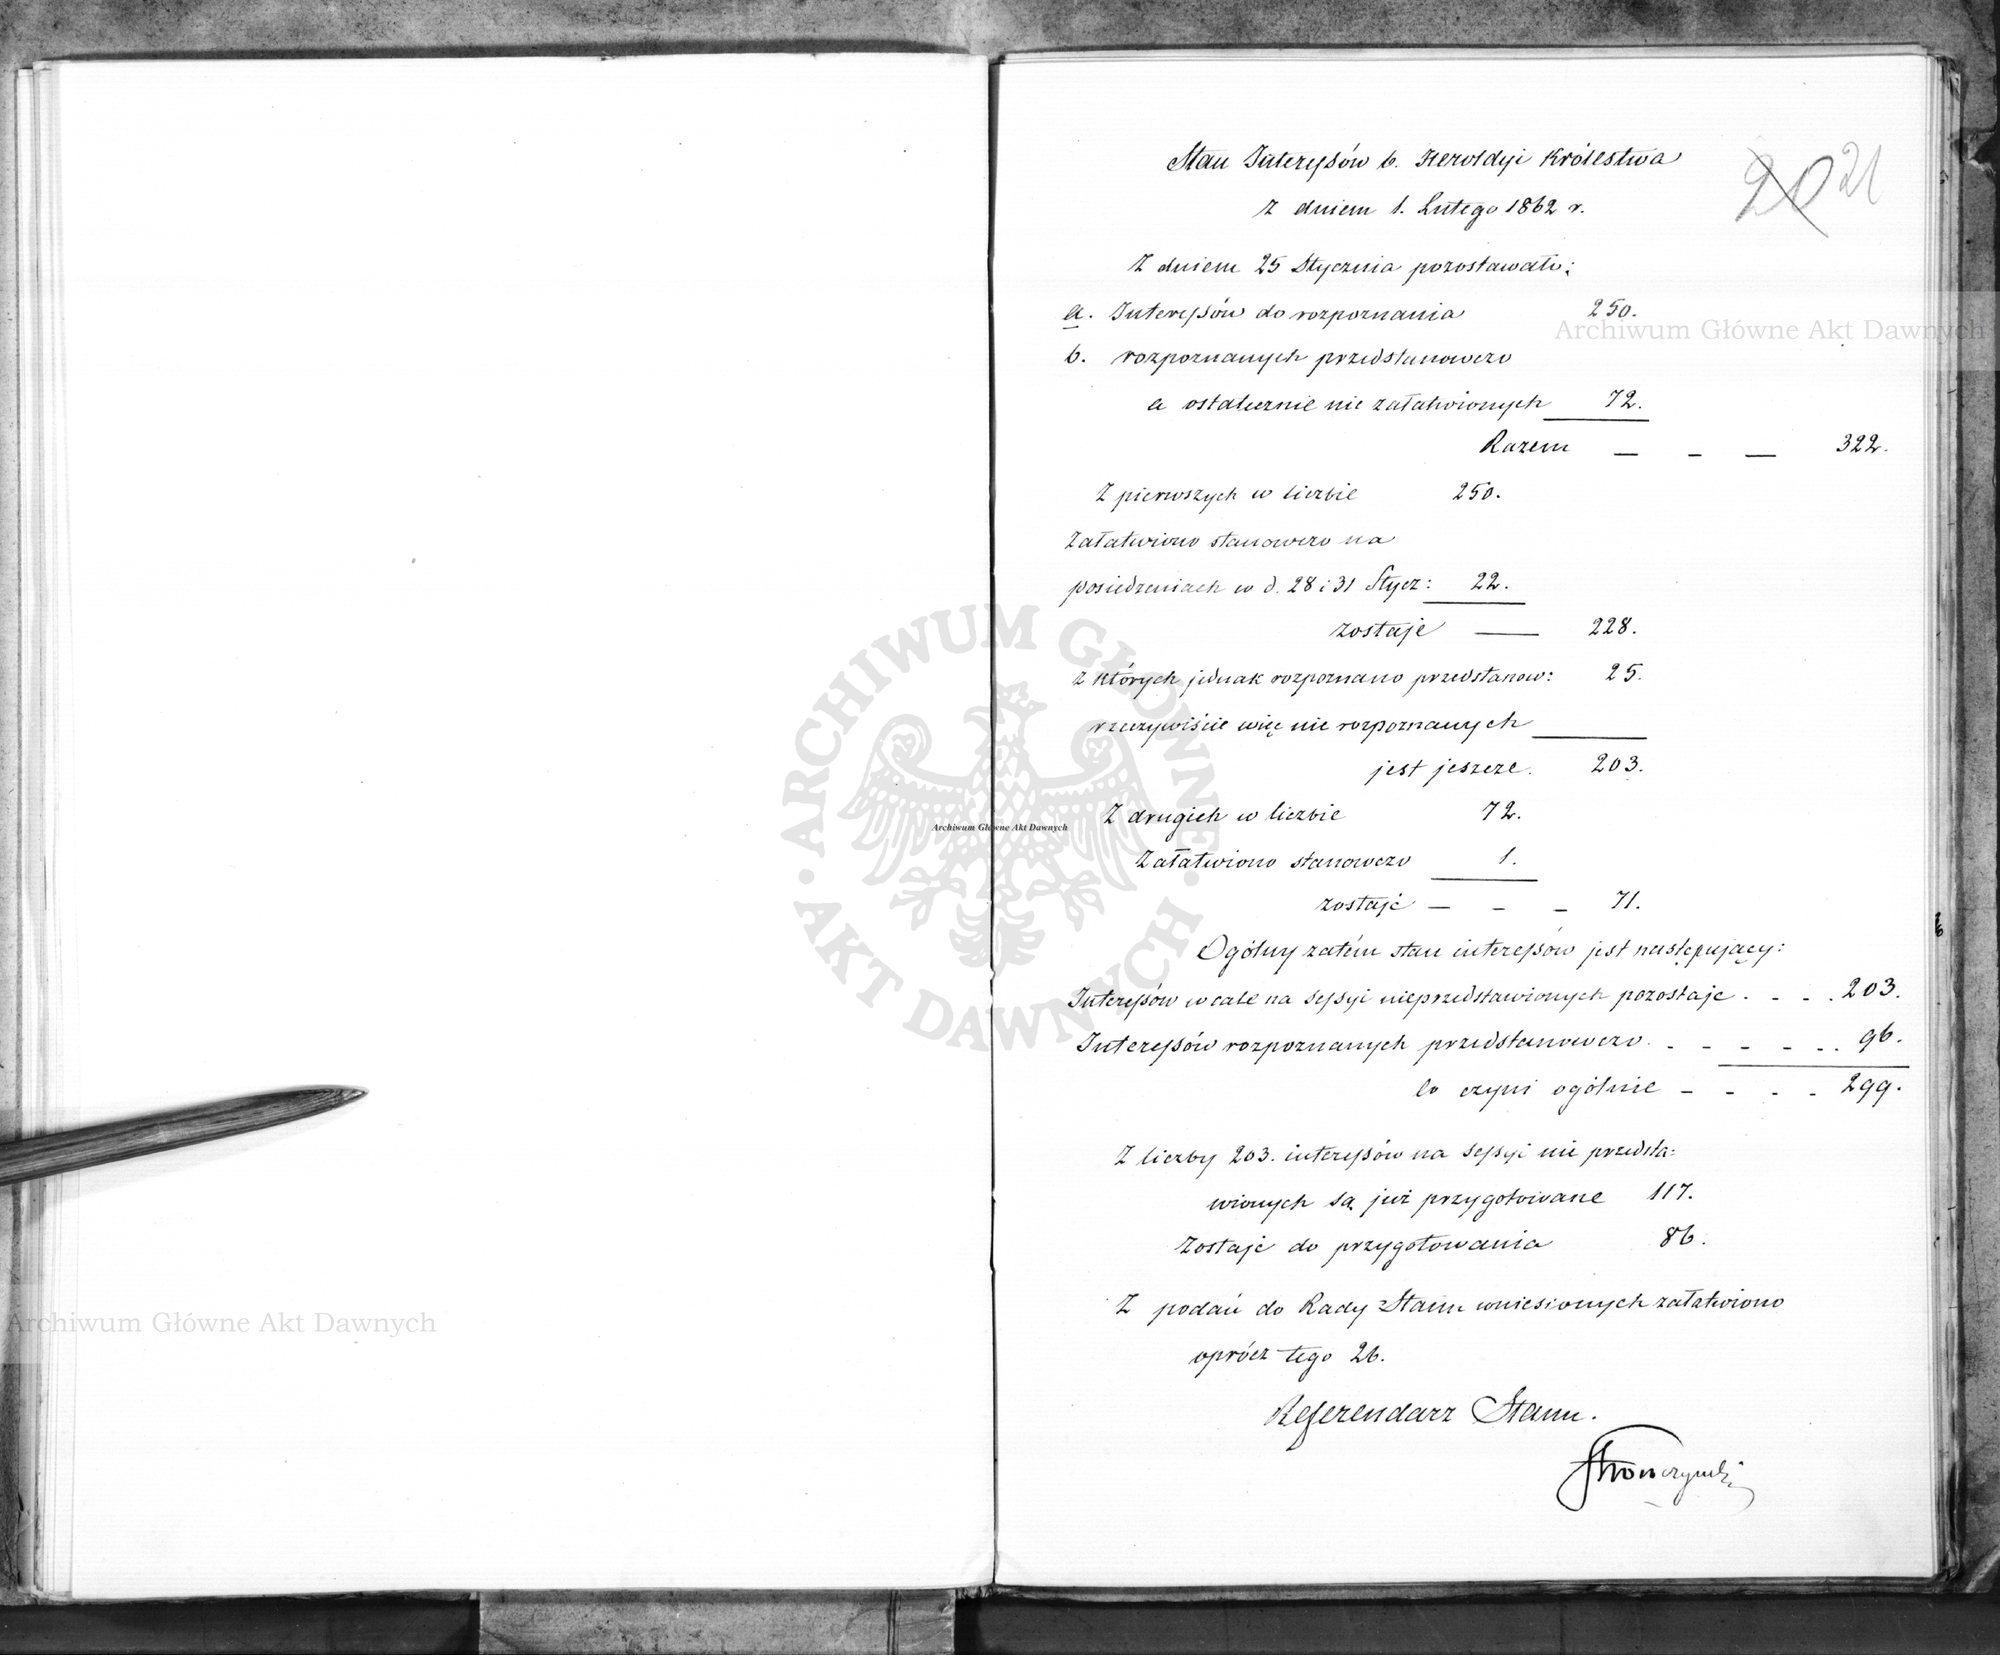 Stan Interessów b. Heroldyi Królestwa
z dniem 1. Lutego 1862 r.
20 21
Z dniem 25 Stycznia pozostawało:
a. Interessów do rozpoznania 250.
b. rozpoznanych przedstanowczo
a ostatecznie nie załatwionych 72.
Razem — — — 322.
Z pierwszych w liczbie 250.
Załatwiono stanowczo na
posiedzeniach w d. 28 i 31 Stycz: 22.
zostaje — 228.
z których jednak rozpoznano przedstanow: 25.
rzeczywiście więc nie rozpoznanych
jest jeszcze. 203.
Z drugich w liczbie 72.
Załatwiono stanowczo 1.
zostaje — — — 71.
Ogólny zatém stan interessów jest następujący:
Interessów wcale na sessyi nieprzedstawionych pozostaje . - - . 203.
Interessów rozpoznanych przedstanowczo. - - - - - . . 96.
co czyni ogólnie - - - - 299.
Z liczby 203. interessów na sessyi nie przedsta=
wionych są już przygotowane 117.
Zostaje do przygotowania 86.
Z podań do Rady Stanu wniesionych załatwiono
oprócz tego 26.
Referendarz Stanu.
Stronczyński
Archiwum Główne Akt Dawnych
Archiwum Główne Akt Dawnych
Archiwum Główne Akt Dawnych
ARCHIWUM GŁÓWNE · AKT DAWNYCH ·